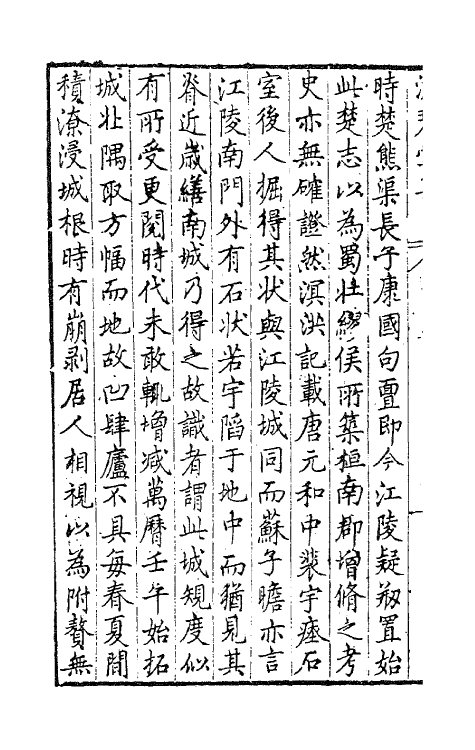 時楚熊渠長子康國句亶即今江陵疑剏置始
此楚志以為蜀壯繆侯所築桓南郡增脩之考
史亦無確證然溟洪記載唐元和中裴宇瘞石
室後人掘得其状與江陵城同而蘇子瞻亦言
江陵南門外有石状若宇陷于地中而猶見其
脊近歲繕南城乃得之故識者謂此城規度似
有所受更閱時代未敢輒增减萬曆壬午始拓
城北隅取方幅而地故凹肆廬不具每春夏間
積潦浸城根時有崩剥居人相視以為附贅無